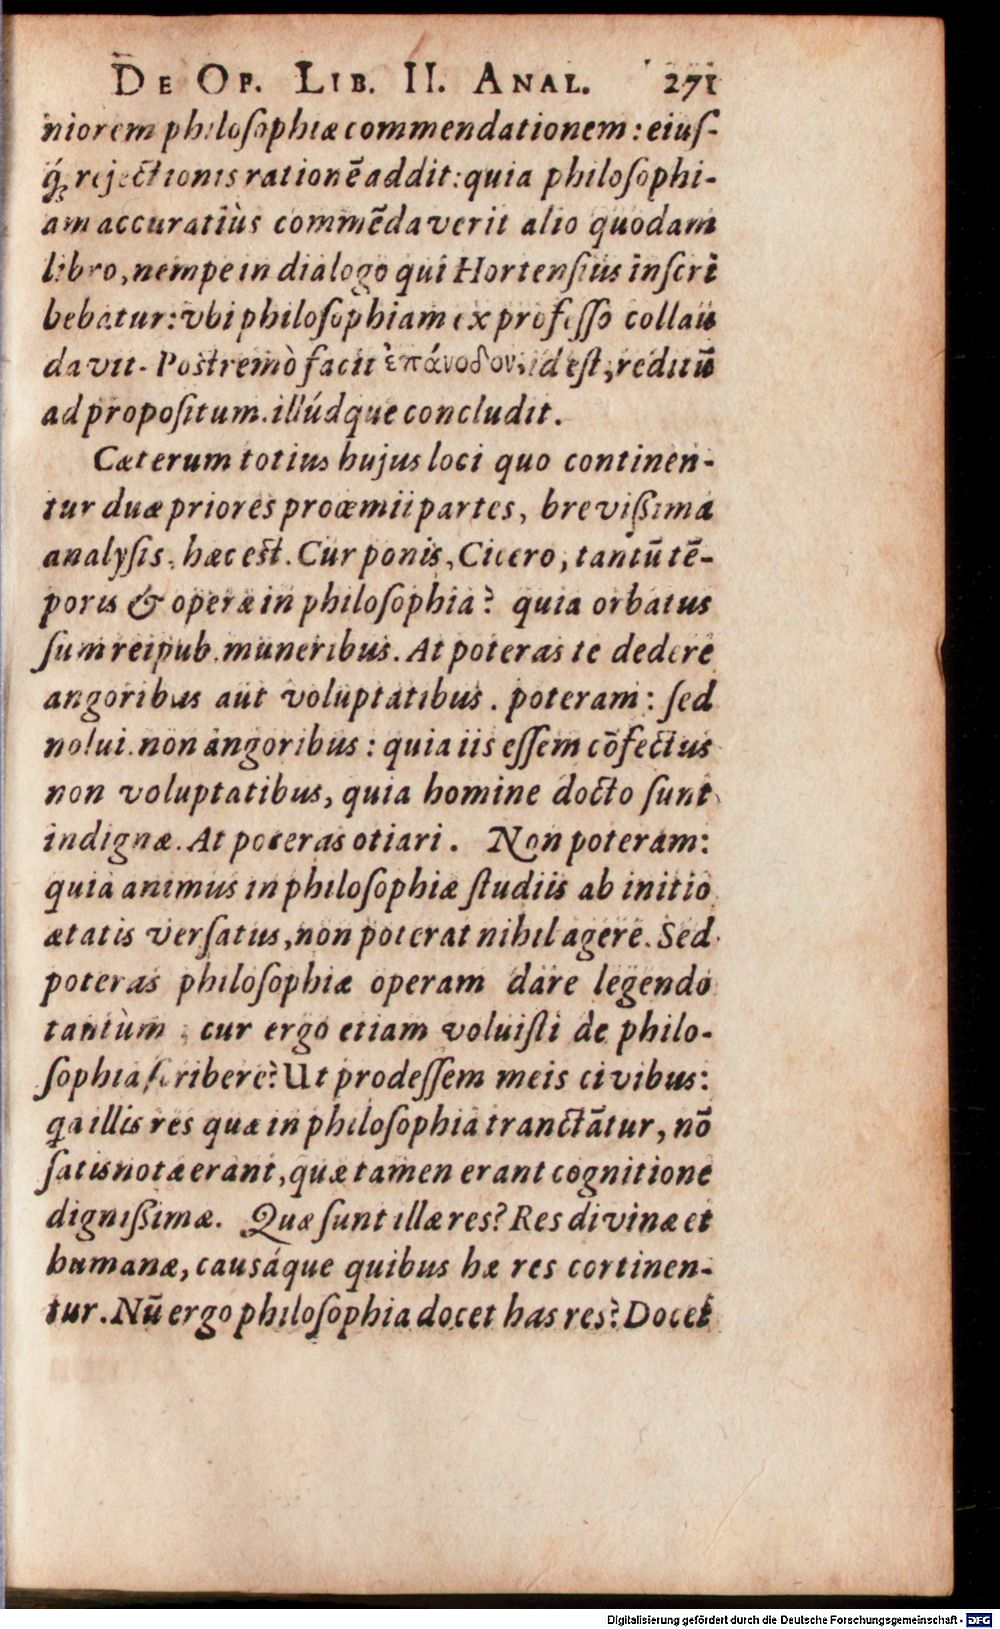 DE OF. LIB. II. ANAL. 271
niorem philoſophiæ commendationem: eiuſ-
q́ꝫ rejectionis rationē addit: quia philoſophi-
am accuratiùs commēdaverit alio quodam
libro, nempe in dialogo qui Hortenſius inſcri
bebatur: vbi philoſophiam ex profeſſo collau
davit. Poſtremò facit ἐπάνοδον, id eſt, reditū
ad propoſitum. illúdque concludit.
Cæterum totius hujus loci quo continen-
tur duæ priores proœmii partes, breviſſima
analyſis, hæc eſt. Cur ponis, Cicero, tantū tē-
poris & operæ in philoſophia? quia orbatus
ſum reipub. muneribus. At poteras te dedere
angoribus aut voluptatibus. poteram: ſed
nolui. non angoribus: quia iis eſſem cōfectus
non voluptatibus, quia homine docto ſunt
indignæ. At poteras otiari. Non poteram:
quia animus in philoſophiæ ſtudiis ab initio
ætatis verſatus, non poterat nihil agere. Sed
poteras philoſophiæ operam dare legendo
tantùm, cur ergo etiam voluiſti de philo-
ſophia ſcribere? Ut prodeſſem meis civibus:
qa illis res quæ in philoſophia tranctātur, nō
ſatis notæ erant, quæ tamen erant cognitione
digniſſimæ. Quæ ſunt illæ res? Res divinæ et
humanæ, causáque quibus hæ res cortinen-
tur. Nū ergo philoſophia docet has res? Docet
Digitalisierung gefördert durch die Deutsche Forschungsgemeinschaft - DFG